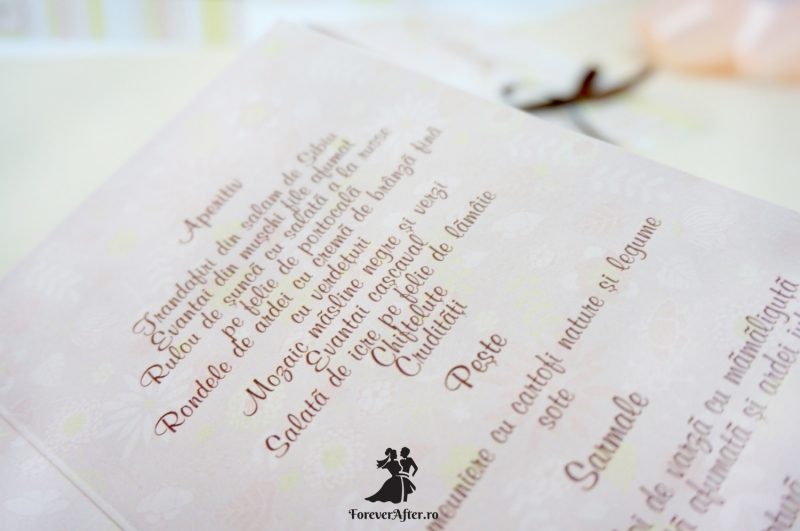 Aperitiv
Trandafiri din salam de Sibiu
Evantai din mușchi file afumat
Rulou de șuncă cu salată a la russe
pe felie de portocală
Rondele de ardei cu cremă de brânză fină
cu verdețuri
Mozaic măsline negre și verzi
Evantai cașcaval
Salată de icre pe felie de lămâie
Chifteluțe
Crudități
Pește
meuniere cu cartofi nature și legume
sote
Sarmale
de varză cu mămăliguță
afumată și ardei
ForeverAfter.ro